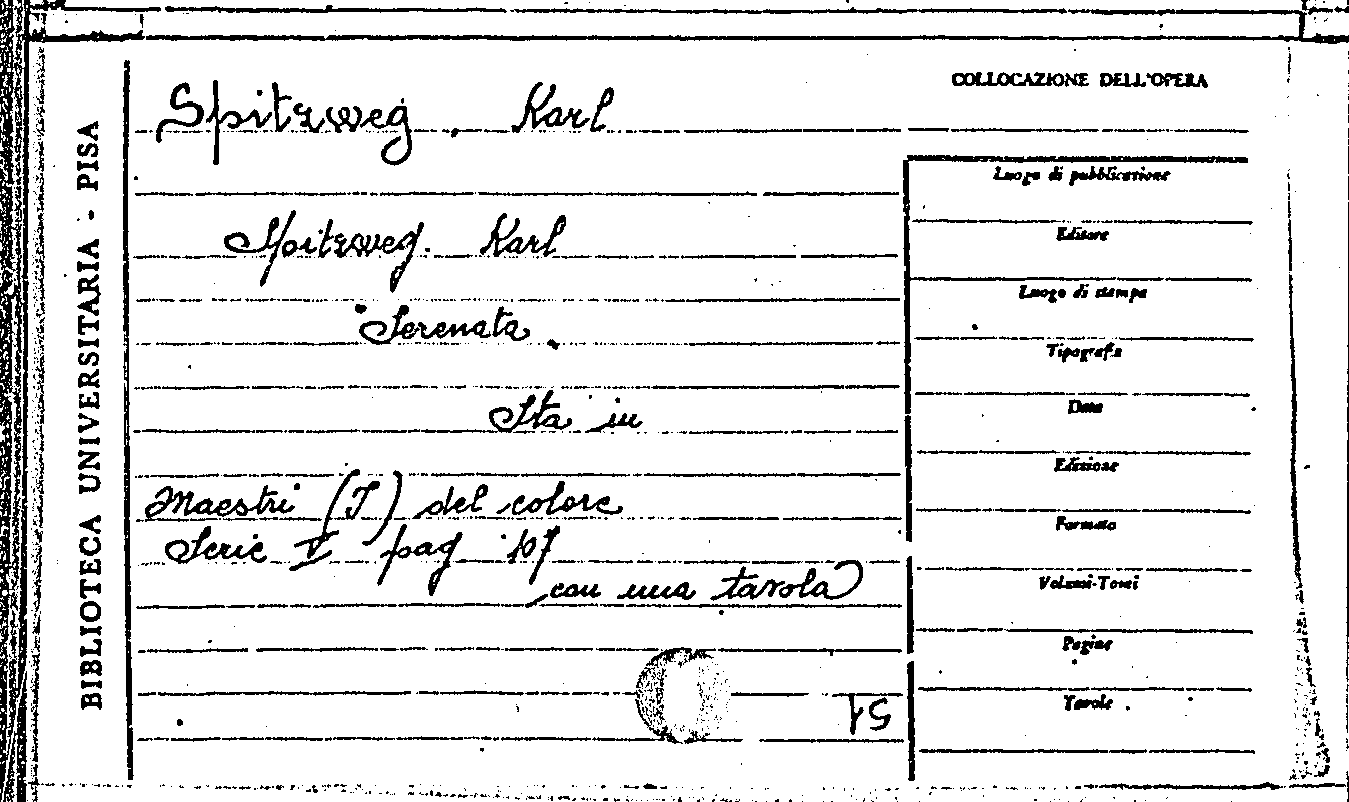 BIBLIOTECA UNIVERSITARIA - PISA
Spitzweg . Karl
Spitzweg. Karl
Serenata.
Sta in
Maestri (I) del colore
Serie V pag 107
con una tavola
COLLOCAZIONE DELL'OPERA
Luogo di pubblicazione
Editore
Luogo di stampa
Tipografia
Data
Edizione
Formato
Volumi-Tomi
Pagine
Tavole